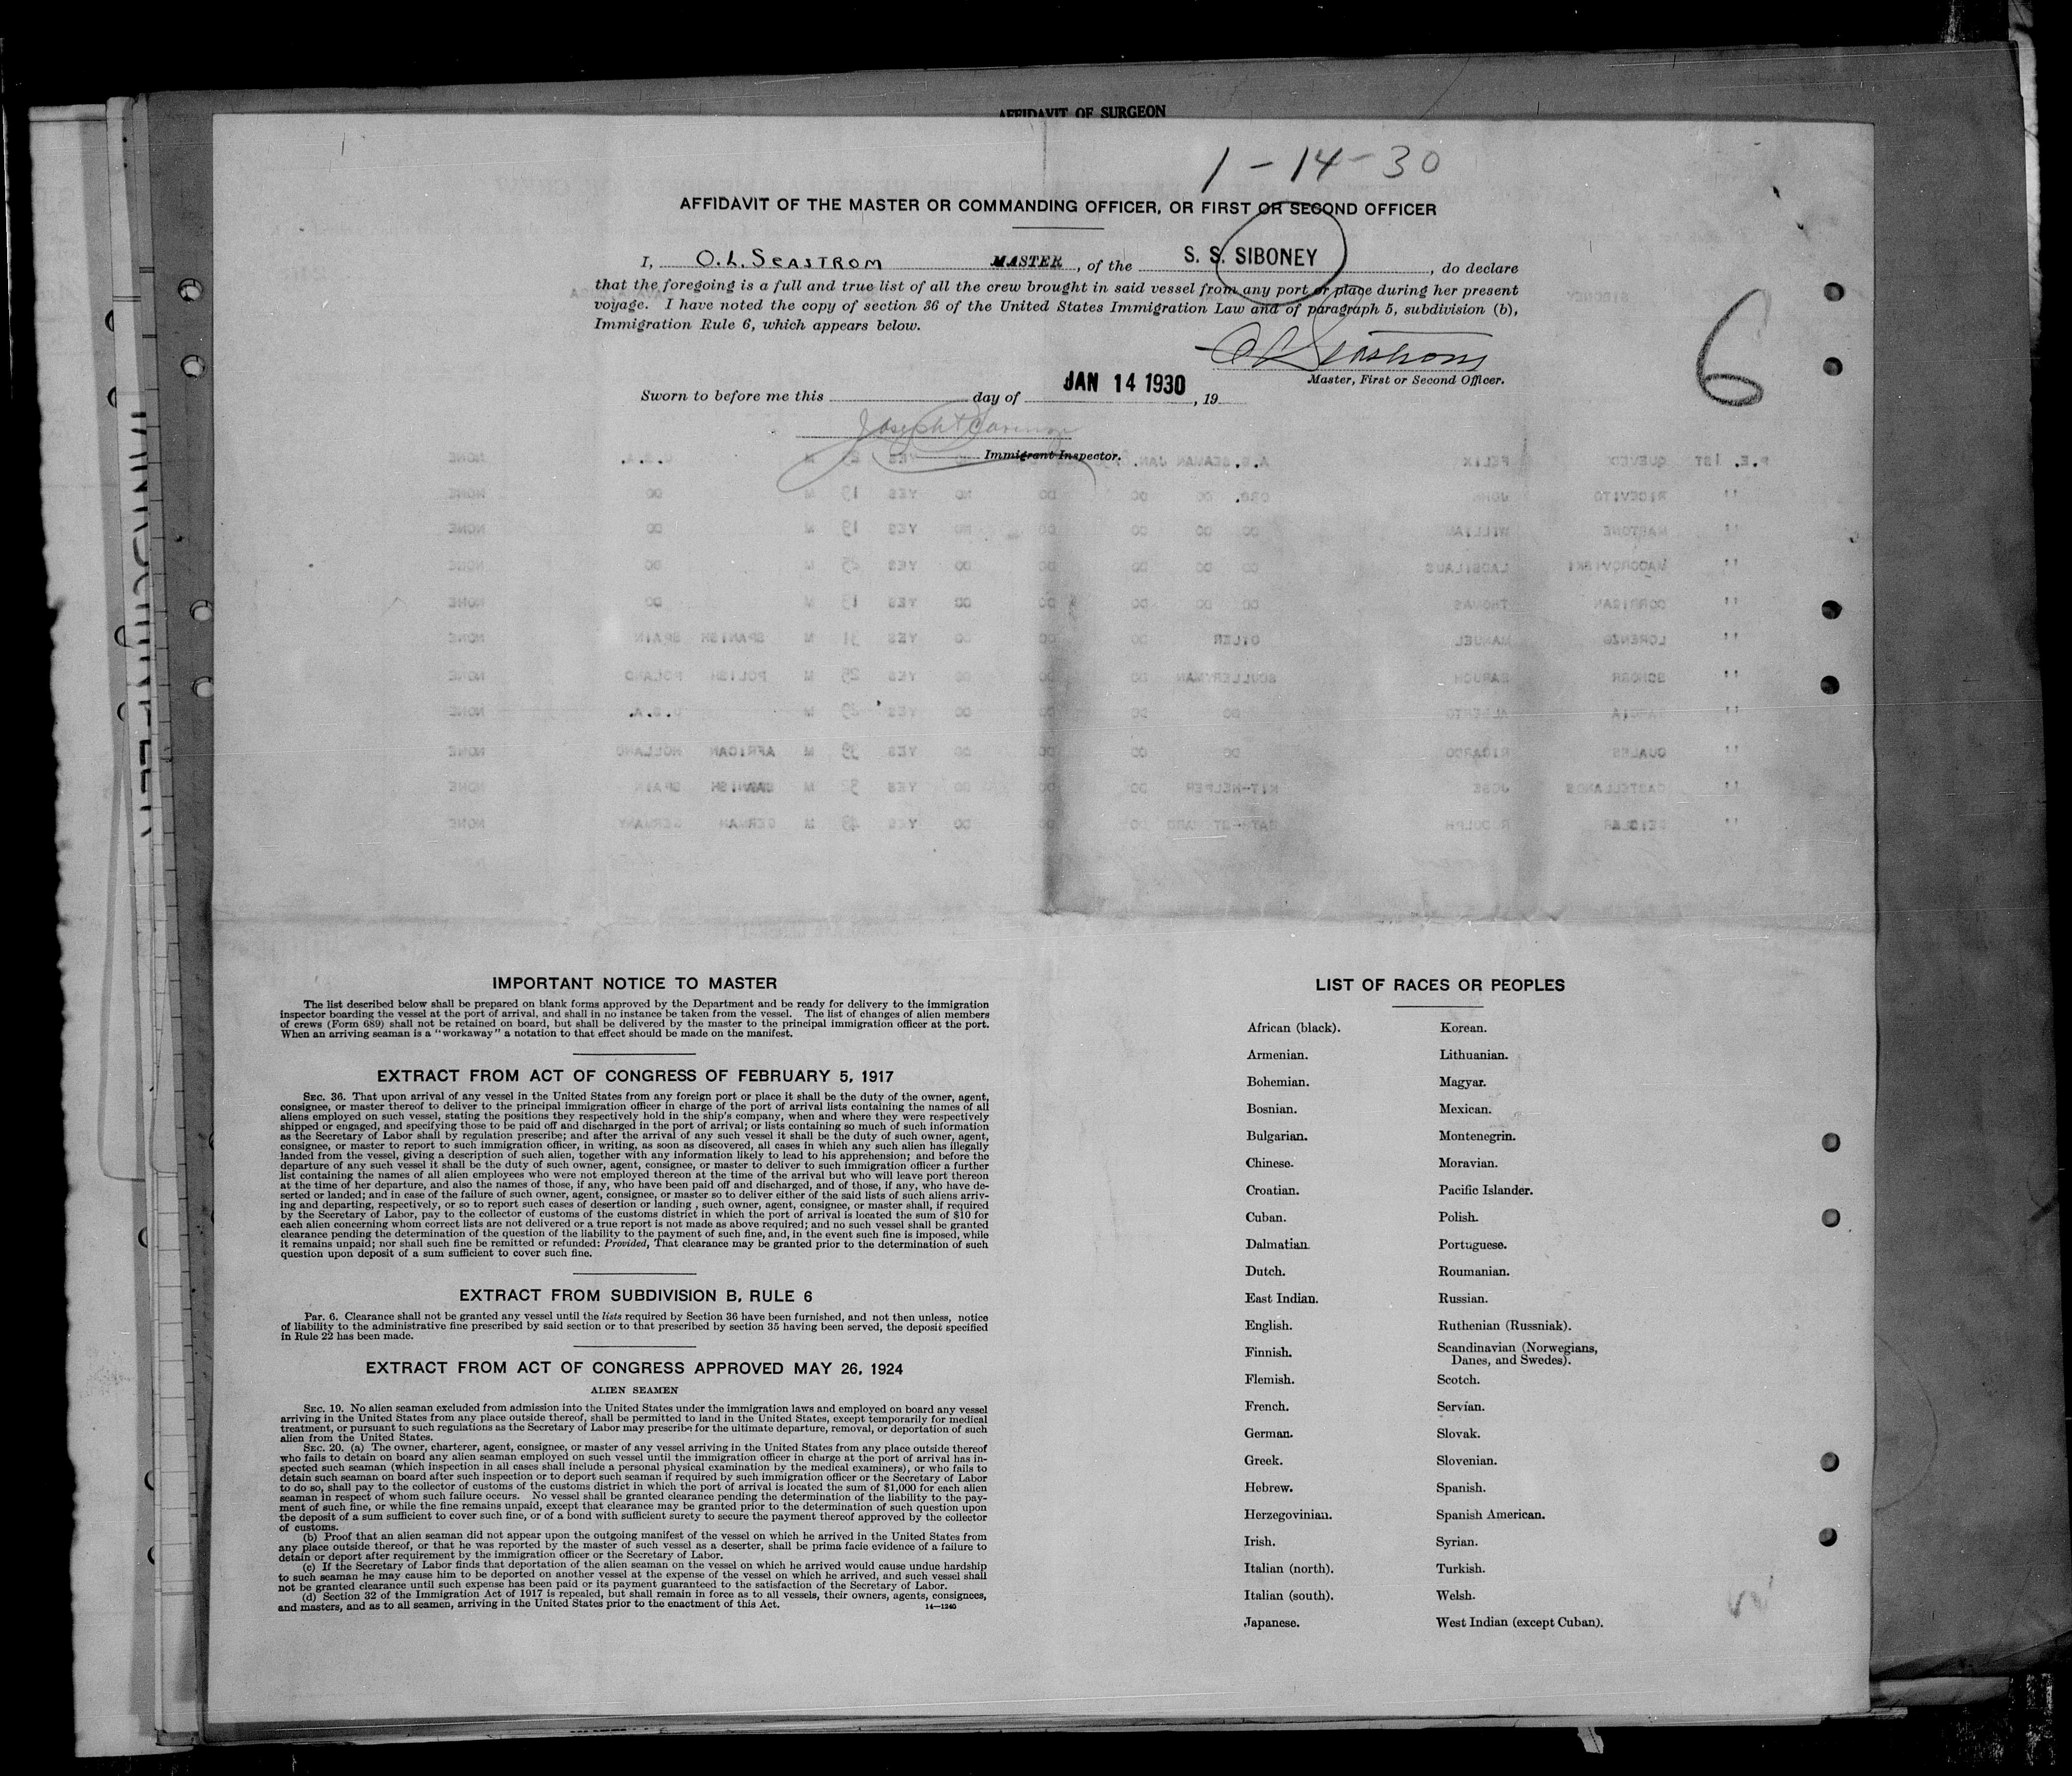 AFFIDAVIT OF SURGEON
1-14-30
AFFIDAVIT OF THE MASTER OR COMMANDING OFFICER, OR FIRST OR SECOND OFFICER
I, O.L. SEASTROM MASTER, of the S. S. SIBONEY, do declare
that the foregoing is a full and true list of all the crew brought in said vessel from any port or place during her present
voyage. I have noted the copy of section 36 of the United States Immigration Law and of paragraph 5, subdivision (b),
Immigration Rule 6, which appears below.
6
O L Seastrom
Master, First or Second Officer.
Sworn to before me this day of JAN 14 1930, 19
Joseph
Immigrant Inspector.
IMPORTANT NOTICE TO MASTER
The list described below shall be prepared on blank forms approved by the Department and be ready for delivery to the immigration
inspector boarding the vessel at the port of arrival, and shall in no instance be taken from the vessel. The list of changes of alien members
of crews (Form 689) shall not be retained on board, but shall be delivered by the master to the principal immigration officer at the port.
When an arriving seaman is a "workaway" a notation to that effect should be made on the manifest.
EXTRACT FROM ACT OF CONGRESS OF FEBRUARY 5, 1917
SEC. 36. That upon arrival of any vessel in the United States from any foreign port or place it shall be the duty of the owner, agent,
consignee, or master thereof to deliver to the principal immigration officer in charge of the port of arrival lists containing the names of all
aliens employed on such vessel, stating the positions they respectively hold in the ship's company, when and where they were respectively
shipped or engaged, and specifying those to be paid off and discharged in the port of arrival; or lists containing so much of such information
as the Secretary of Labor shall by regulation prescribe; and after the arrival of any such vessel it shall be the duty of such owner, agent,
consignee, or master to report to such immigration officer, in writing, as soon as discovered, all cases in which any such alien has illegally
landed from the vessel, giving a description of such alien, together with any information likely to lead to his apprehension; and before the
departure of any such vessel it shall be the duty of such owner, agent, consignee, or master to deliver to such immigration officer a further
list containing the names of all alien employees who were not employed thereon at the time of the arrival but who will leave port thereon
at the time of her departure, and also the names of those, if any, who have been paid off and discharged, and of those, if any, who have de-
serted or landed; and in case of the failure of such owner, agent, consignee, or master so to deliver either of the said lists of such aliens arriv-
ing and departing, respectively, or so to report such cases of desertion or landing , such owner, agent, consignee, or master shall, if required
by the Secretary of Labor, pay to the collector of customs of the customs district in which the port of arrival is located the sum of $10 for
each alien concerning whom correct lists are not delivered or a true report is not made as above required; and no such vessel shall be granted
clearance pending the determination of the question of the liability to the payment of such fine, and, in the event such fine is imposed, while
it remains unpaid; nor shall such fine be remitted or refunded: Provided, That clearance may be granted prior to the determination of such
question upon deposit of a sum sufficient to cover such fine.
EXTRACT FROM SUBDIVISION B, RULE 6
Par. 6. Clearance shall not be granted any vessel until the lists required by Section 36 have been furnished, and not then unless, notice
of liability to the administrative fine prescribed by said section or to that prescribed by section 35 having been served, the deposit specified
in Rule 22 has been made.
EXTRACT FROM ACT OF CONGRESS APPROVED MAY 26, 1924
ALIEN SEAMEN
SEC. 19. No alien seaman excluded from admission into the United States under the immigration laws and employed on board any vessel
arriving in the United States from any place outside thereof, shall be permitted to land in the United States, except temporarily for medical
treatment, or pursuant to such regulations as the Secretary of Labor may prescribe for the ultimate departure, removal, or deportation of such
alien from the United States.
SEC. 20. (a) The owner, charterer, agent, consignee, or master of any vessel arriving in the United States from any place outside thereof
who fails to detain on board any alien seaman employed on such vessel until the immigration officer in charge at the port of arrival has in-
spected such seaman (which inspection in all cases shall include a personal physical examination by the medical examiners), or who fails to
detain such seaman on board after such inspection or to deport such seaman if required by such immigration officer or the Secretary of Labor
to do so, shall pay to the collector of customs of the customs district in which the port of arrival is located the sum of $1,000 for each alien
seaman in respect of whom such failure occurs. No vessel shall be granted clearance pending the determination of the liability to the pay-
ment of such fine, or while the fine remains unpaid, except that clearance may be granted prior to the determination of such question upon
the deposit of a sum sufficient to cover such fine, or of a bond with sufficient surety to secure the payment thereof approved by the collector
of customs.
(b) Proof that an alien seaman did not appear upon the outgoing manifest of the vessel on which he arrived in the United States from
any place outside thereof, or that he was reported by the master of such vessel as a deserter, shall be prima facie evidence of a failure to
detain or deport after requirement by the immigration officer or the Secretary of Labor.
(c) If the Secretary of Labor finds that deportation of the alien seaman on the vessel on which he arrived would cause undue hardship
to such seaman he may cause him to be deported on another vessel at the expense of the vessel on which he arrived, and such vessel shall
not be granted clearance until such expense has been paid or its payment guaranteed to the satisfaction of the Secretary of Labor.
(d) Section 32 of the Immigration Act of 1917 is repealed, but shall remain in force as to all vessels, their owners, agents, consignees,
and masters, and as to all seamen, arriving in the United States prior to the enactment of this Act.
14—1240
LIST OF RACES OR PEOPLES
African (black).
Armenian.
Bohemian.
Bosnian.
Bulgarian.
Chinese.
Croatian.
Cuban.
Dalmatian.
Dutch.
East Indian.
English.
Finnish.
Flemish.
French.
German.
Greek.
Hebrew.
Herzegovinian.
Irish.
Italian (north).
Italian (south).
Japanese.
Korean.
Lithuanian.
Magyar.
Mexican.
Montenegrin.
Moravian.
Pacific Islander.
Polish.
Portuguese.
Roumanian.
Russian.
Ruthenian (Russniak).
Scandinavian (Norwegians,
Danes, and Swedes).
Scotch.
Servian.
Slovak.
Slovenian.
Spanish.
Spanish American.
Syrian.
Turkish.
Welsh.
West Indian (except Cuban).